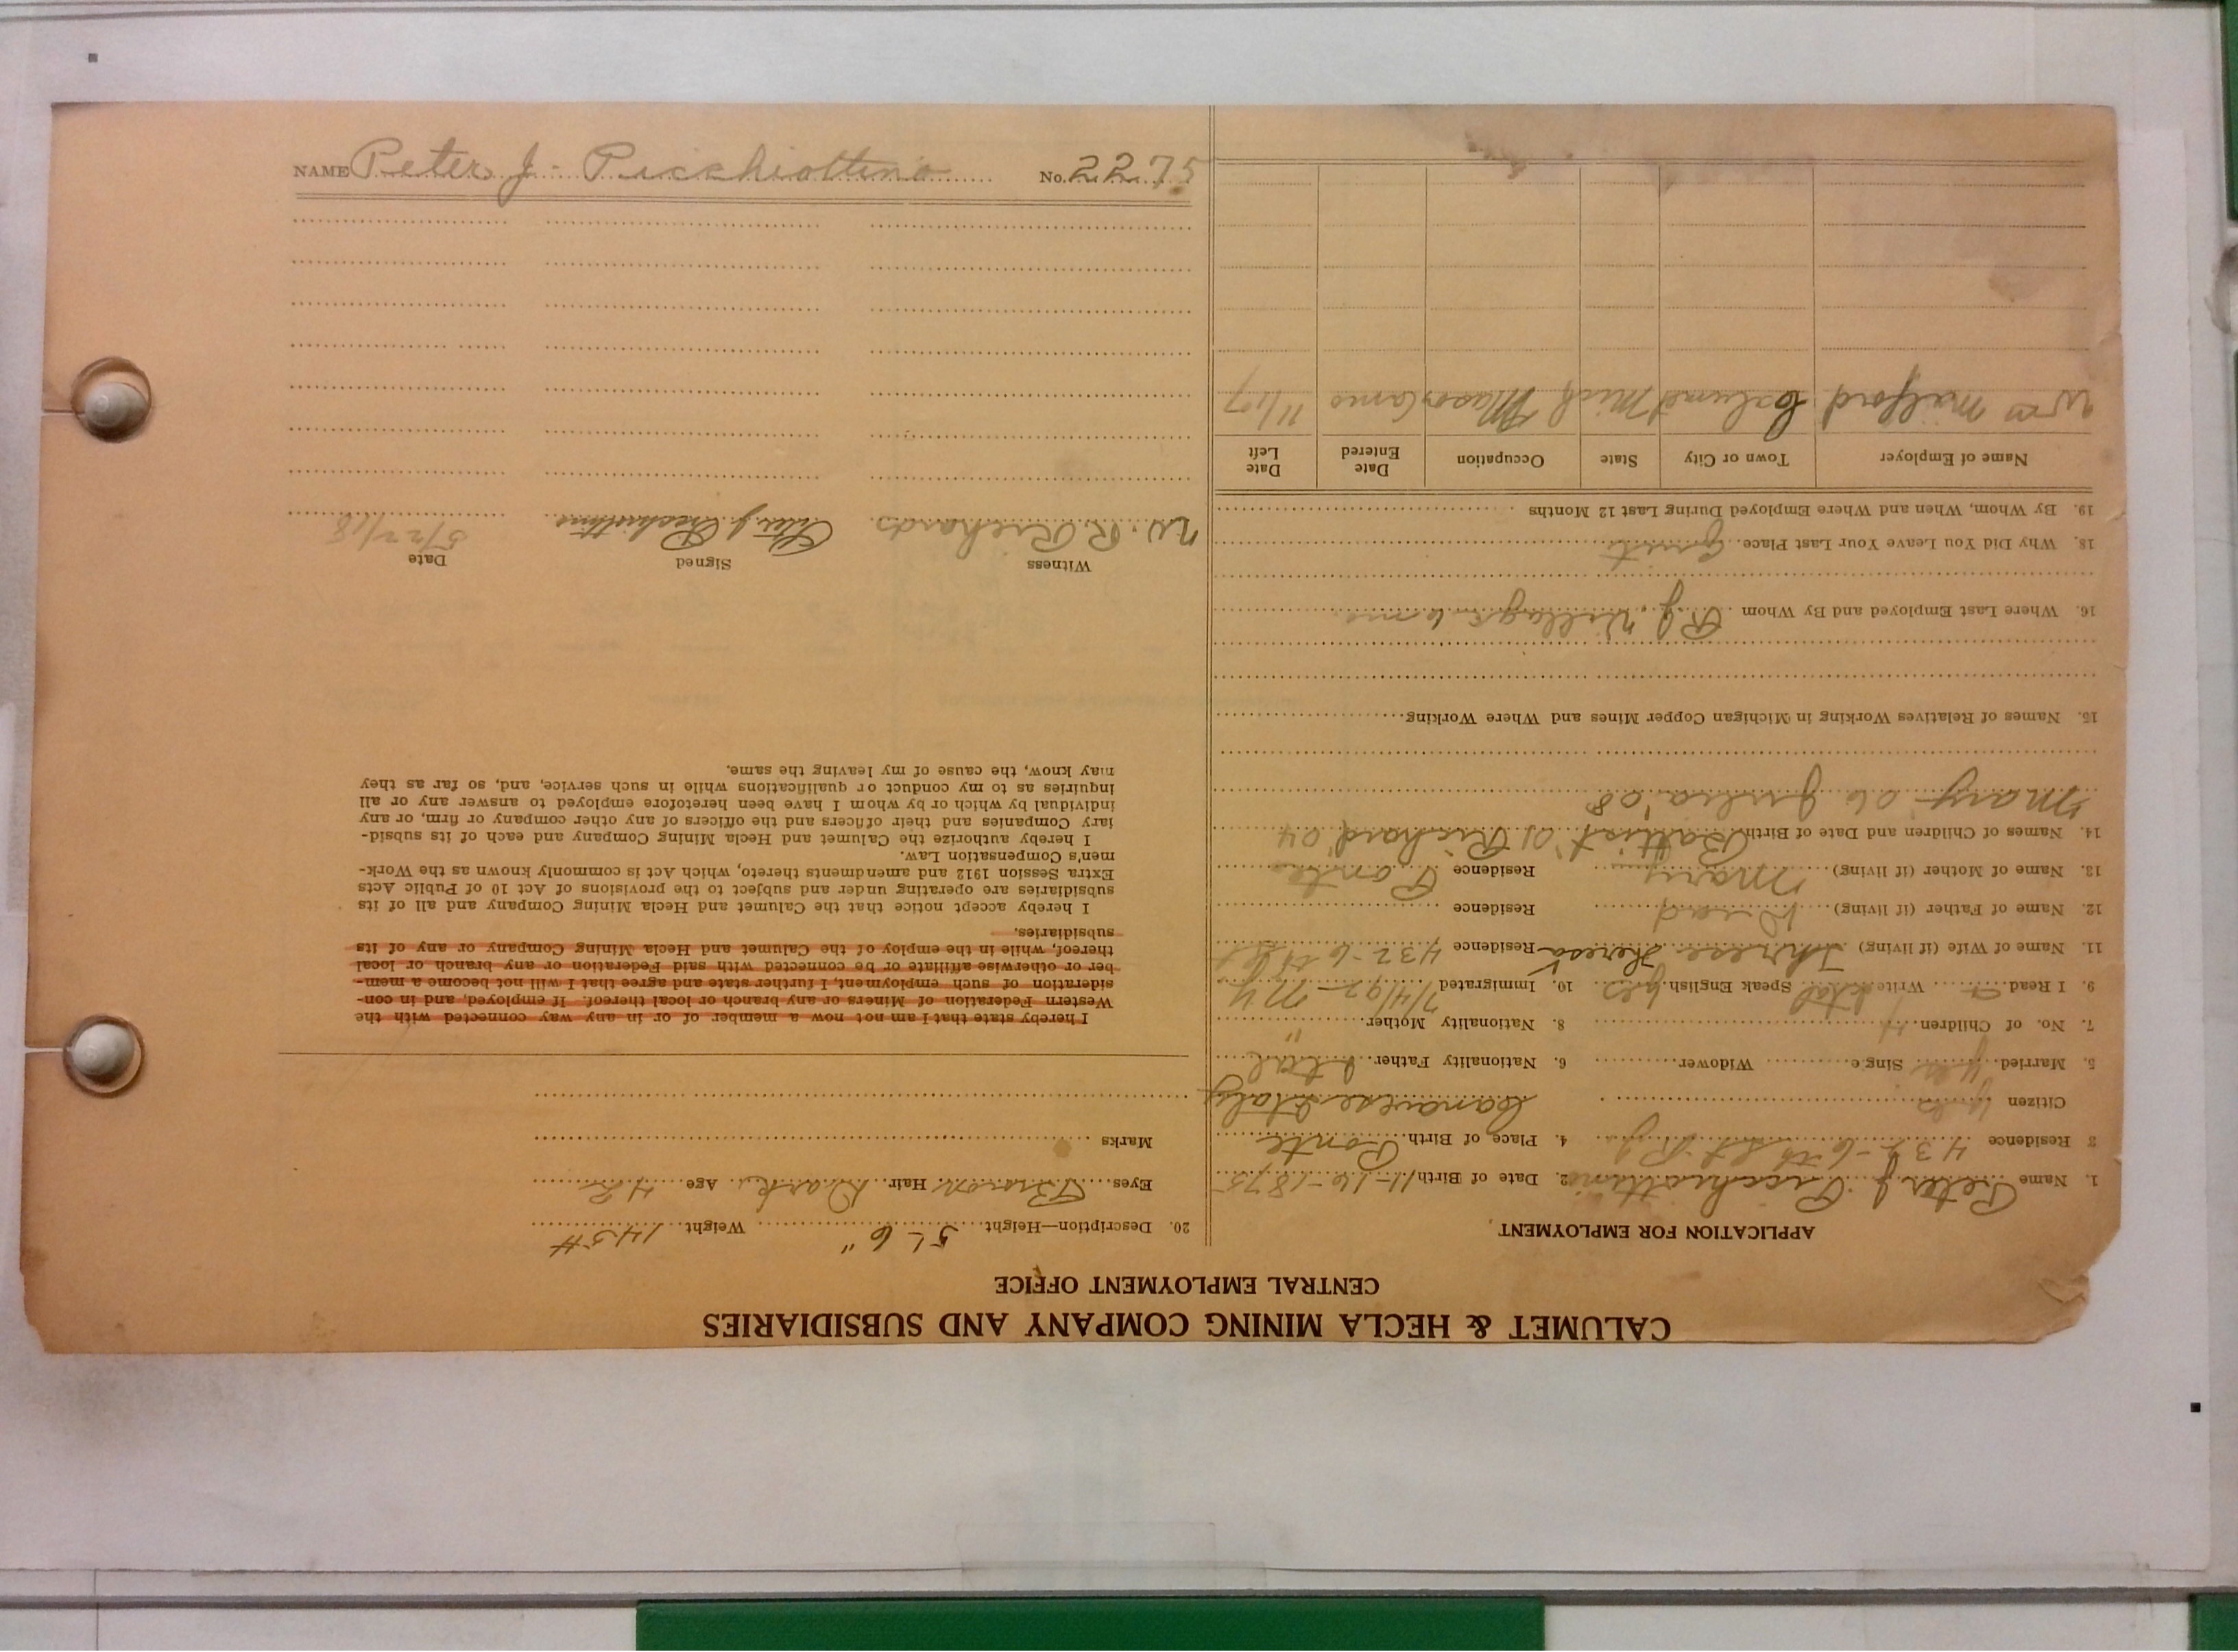 CALUMET & HECLA MINING COMPANY AND SUBSIDIARIES
CENTRAL EMPLOYMENT OFFICE
APPLICATION FOR EMPLOYMENT
1. Name Peter J Picchiottino 2. Date of Birth 11-16-1875
3 Residence 432-6th St 4. Place of Birth Ponte
Citizen Yes Canavese Italy
5. Married yes Single Widower 6. Nationality Father Ital
7. No. of Children 4 8. Nationality Mother "
9. I Read Write Ital Speak English yes 10. Immigrated 7/4/92 - NY
11. Name of Wife (if living) Therese Theresa Residence 432-6th St
12. Name of Father (if living) Dead Residence
13. Name of Mother (if living) Mary Residence Ponte
14. Names of Children and Date of Birth Battist '01 Richard '04
Mary - 06 Julia '08
15. Names of Relatives Working in Michigan Copper Mines and Where Working
16. Where Last Employed and By Whom R.J.
18. Why Did You Leave Your Last Place Quit
19. By Whom, When and Where Employed During Last 12 Months
Name of Employer Town or City State Occupation Date Entered Date Left
Wm Milford Calumet Mich Mason 11/17
20. Description—Height 5'-6" Weight 145#
Eyes Brown Hair Dark Age 42
Marks
I hereby state that I am not now a member of or in any way connected with the
Western Federation of Miners or any branch or local thereof. If employed, and in con-
sideration of such employment, I further state and agree that I will not become a mem-
ber or otherwise affiliate or be connected with said Federation or any branch or local
thereof, while in the employ of the Calumet and Hecla Mining Company or any of its
subsidiaries.
I hereby accept notice that the Calumet and Hecla Mining Company and all of its
subsidiaries are operating under and subject to the provisions of Act 10 of Public Acts
Extra Session 1912 and amendments thereto, which Act is commonly known as the Work-
men's Compensation Law.
I hereby authorize the Calumet and Hecla Mining Company and each of its subsid-
iary Companies and their officers and the officers of any other company or firm, or any
individual by which or by whom I have been heretofore employed to answer any or all
inquiries as to my conduct or qualifications while in such service, and, so far as they
may know, the cause of my leaving the same.
Witness Signed Date
W. R Richards Peter J. Picchiottino 5/22/18
NAME Peter J - Picchiottino No. 2275